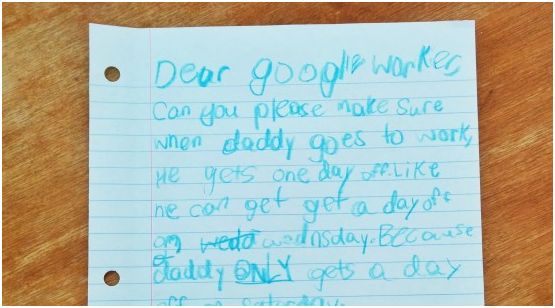 Dear google worker,
Can you please make sure
when daddy goes to work,
He gets one day off. Like
he can get get a day off
on wedd wednsday. Because
daddy ONLY gets a day
off on Saturday.